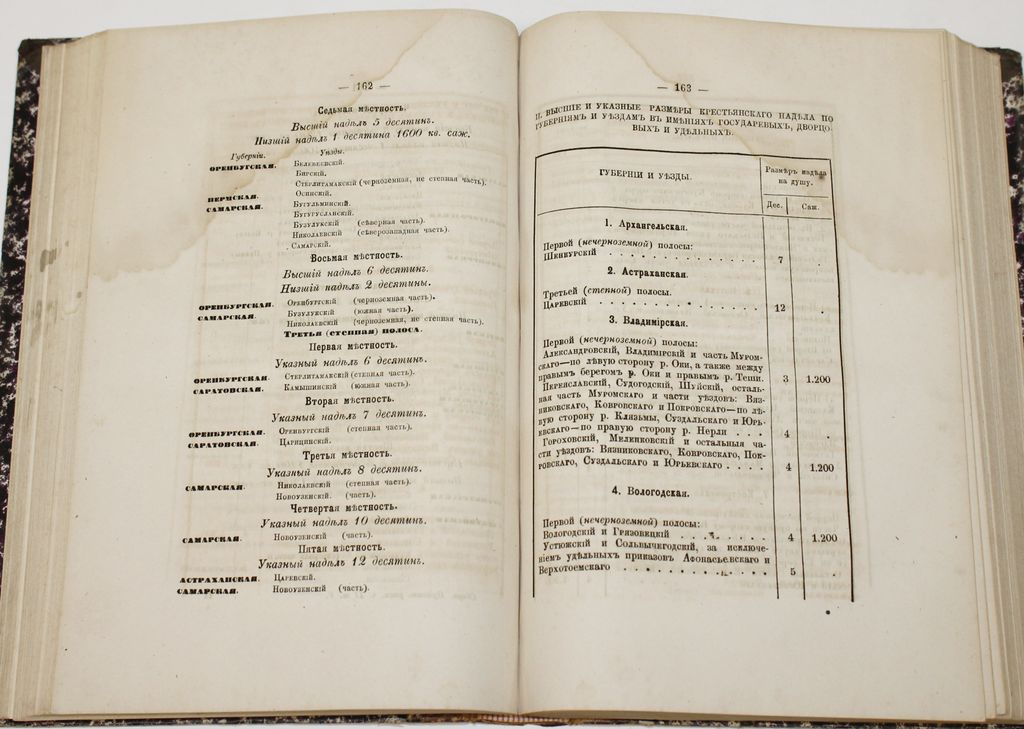 — 162 —
Седьмая мѣстность.
Высшій надѣлъ 5 десятинъ.
Низшій надѣлъ 1 десятина 1600 кв. саж.
Губерніи. Уѣзды.
ОРЕНБУРГСКАЯ. Белебеевскій.
Бирскій.
Стерлитамакскій (черноземная, не степная часть).
ПЕРМСКАЯ. Осинскій.
САМАРСКАЯ. Бугульминскій.
Бугурусланскій.
Бузулукскій (сѣверная часть).
Николаевскій (сѣверозападная часть).
Самарскій.
Восьмая мѣстность.
Высшій надѣлъ 6 десятинъ.
Низшій надѣлъ 2 десятины.
ОРЕНБУРГСКАЯ. Оренбургскій (черноземная часть).
САМАРСКАЯ. Бузулукскій (южная часть).
Николаевскій (черноземная, не степная часть).
Третья (степная) полоса.
Первая мѣстность.
Указный надѣлъ 6 десятинъ.
ОРЕНБУРГСКАЯ. Стерлитамакскій (степная часть).
САРАТОВСКАЯ. Камышинскій (южная часть).
Вторая мѣстность.
Указный надѣлъ 7 десятинъ.
ОРЕНБУРГСКАЯ. Оренбургскій (степная часть).
САРАТОВСКАЯ. Царицинскій.
Третья мѣстность.
Указный надѣлъ 8 десятинъ.
САМАРСКАЯ. Николаевскій (степная часть).
Новоузенскій. (часть).
Четвертая мѣстность.
Указный надѣлъ 10 десятинъ.
САМАРСКАЯ. Новоузенскій (часть).
Пятая мѣстность.
Указный надѣлъ 12 десятинъ.
АСТРАХАНСКАЯ. Царевскій.
САМАРСКАЯ. Новоузенскій (часть).
— 163 —
II. ВЫСШІЕ И УКАЗНЫЕ РАЗМѢРЫ КРЕСТЬЯНСКАГО НАДѢЛА ПО
ГУБЕРНІЯМЪ И УѢЗДАМЪ ВЪ ИМѢНІЯХЪ ГОСУДАРЕВЫХЪ, ДВОРЦО
ВЫХЪ И УДѢЛЬНЫХЪ.
ГУБЕРНІИ И УѢЗДЫ.
Размѣръ надѣла
на душу.
Дес. Саж.
1. Архангельская.
Первой (нечерноземной) полосы:
Шенкурскій . . . . . . . . . . . . . 7 .
2. Астраханская.
Третьей (степной) полосы.
Царевскій . . . . . . . . . . . . . 12 .
3. Владимірская.
Первой (нечерноземной) полосы:
Александровскій, Владимірскій и часть Муром-
скаго—по лѣвую сторону р. Оки, а также между
правымъ берегомъ р. Оки и правымъ р. Теши. 3 1.200
Переяславскій, Судогодскій, Шуйскій, осталь-
ная часть Муромскаго и части уѣздовъ: Вяз-
никовскаго, Ковровскаго и Покровскаго—по лѣ-
вую сторону р. Клязьмы, Суздальскаго и Юрь-
евскаго—по правую сторону р. Нерли . . . 4 .
Гороховскій, Меленковскій и остальныя ча-
сти уѣздовъ: Вязниковскаго, Ковровскаго, Пок-
ровскаго, Суздальскаго и Юрьевскаго . . . . 4 1.200
4. Вологодская.
Первой (нечерноземной) полосы:
Вологодскій и Грязовицкій . . . . . . . 4 1.200
Устюжскій и Сольвычегодскій, за исключе-
ніемъ удѣльныхъ приказовъ Афонасьевскаго и
Верхотоемскаго . . . . . . . . . . . . 5 .